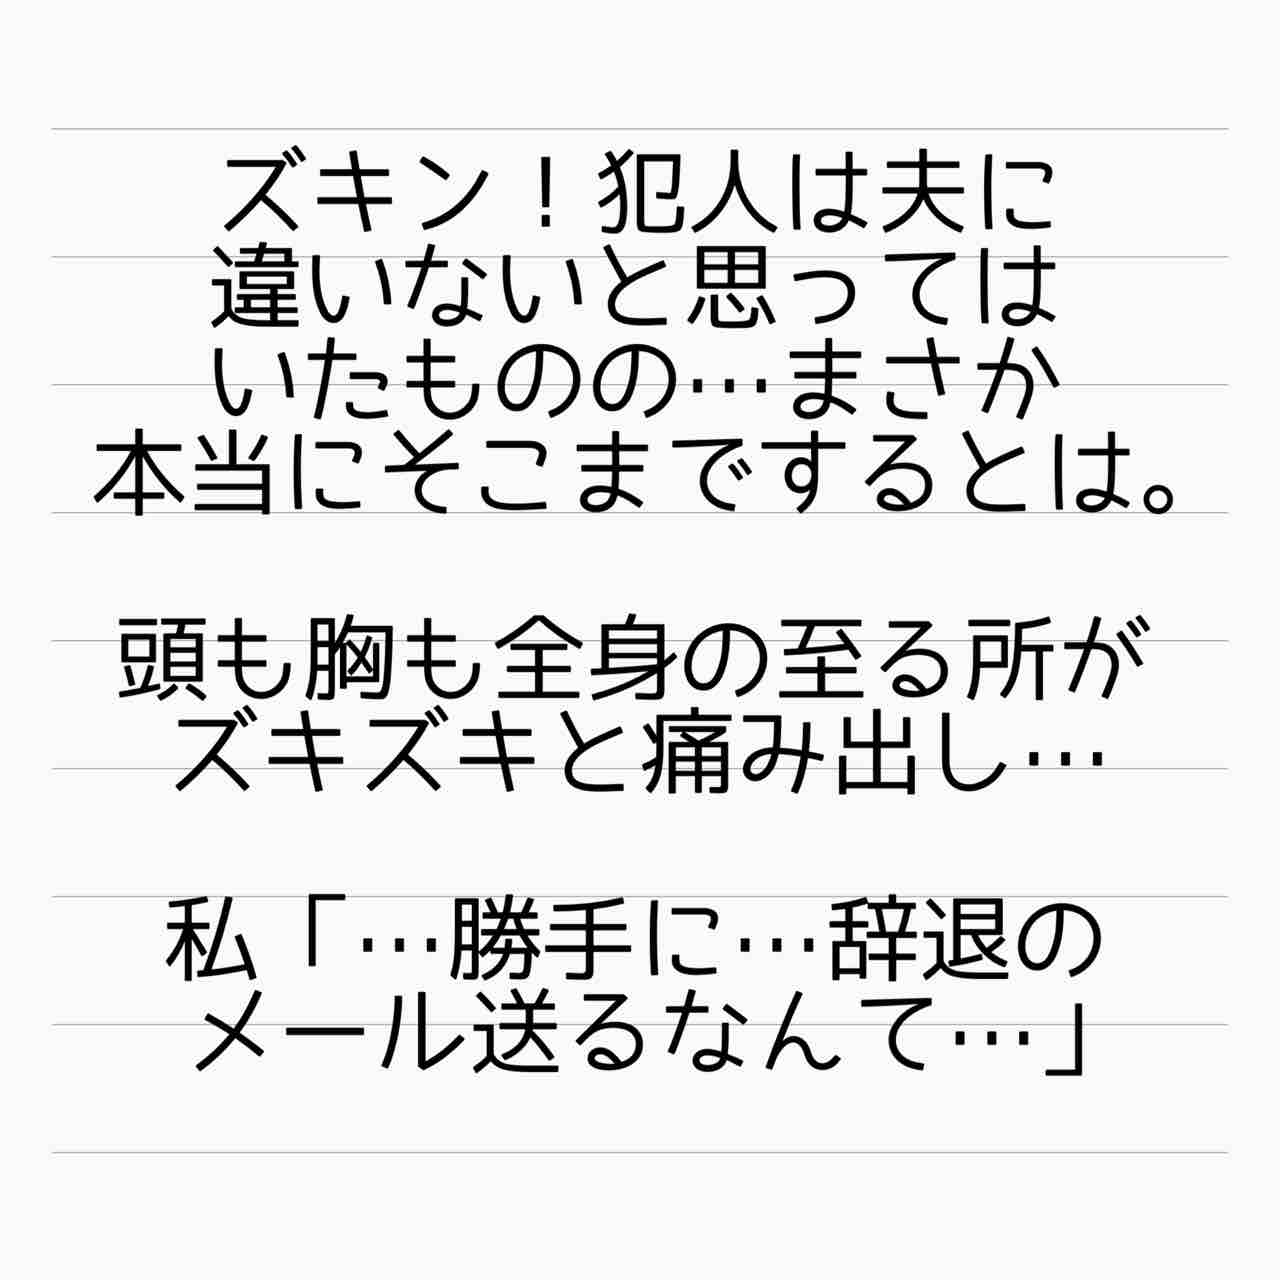 ズキン！犯人は夫に
違いないと思っては
いたものの…まさか
本当にそこまでするとは。
頭も胸も全身の至る所が
ズキズキと痛み出し…
私「…勝手に…辞退の
メール送るなんて…」